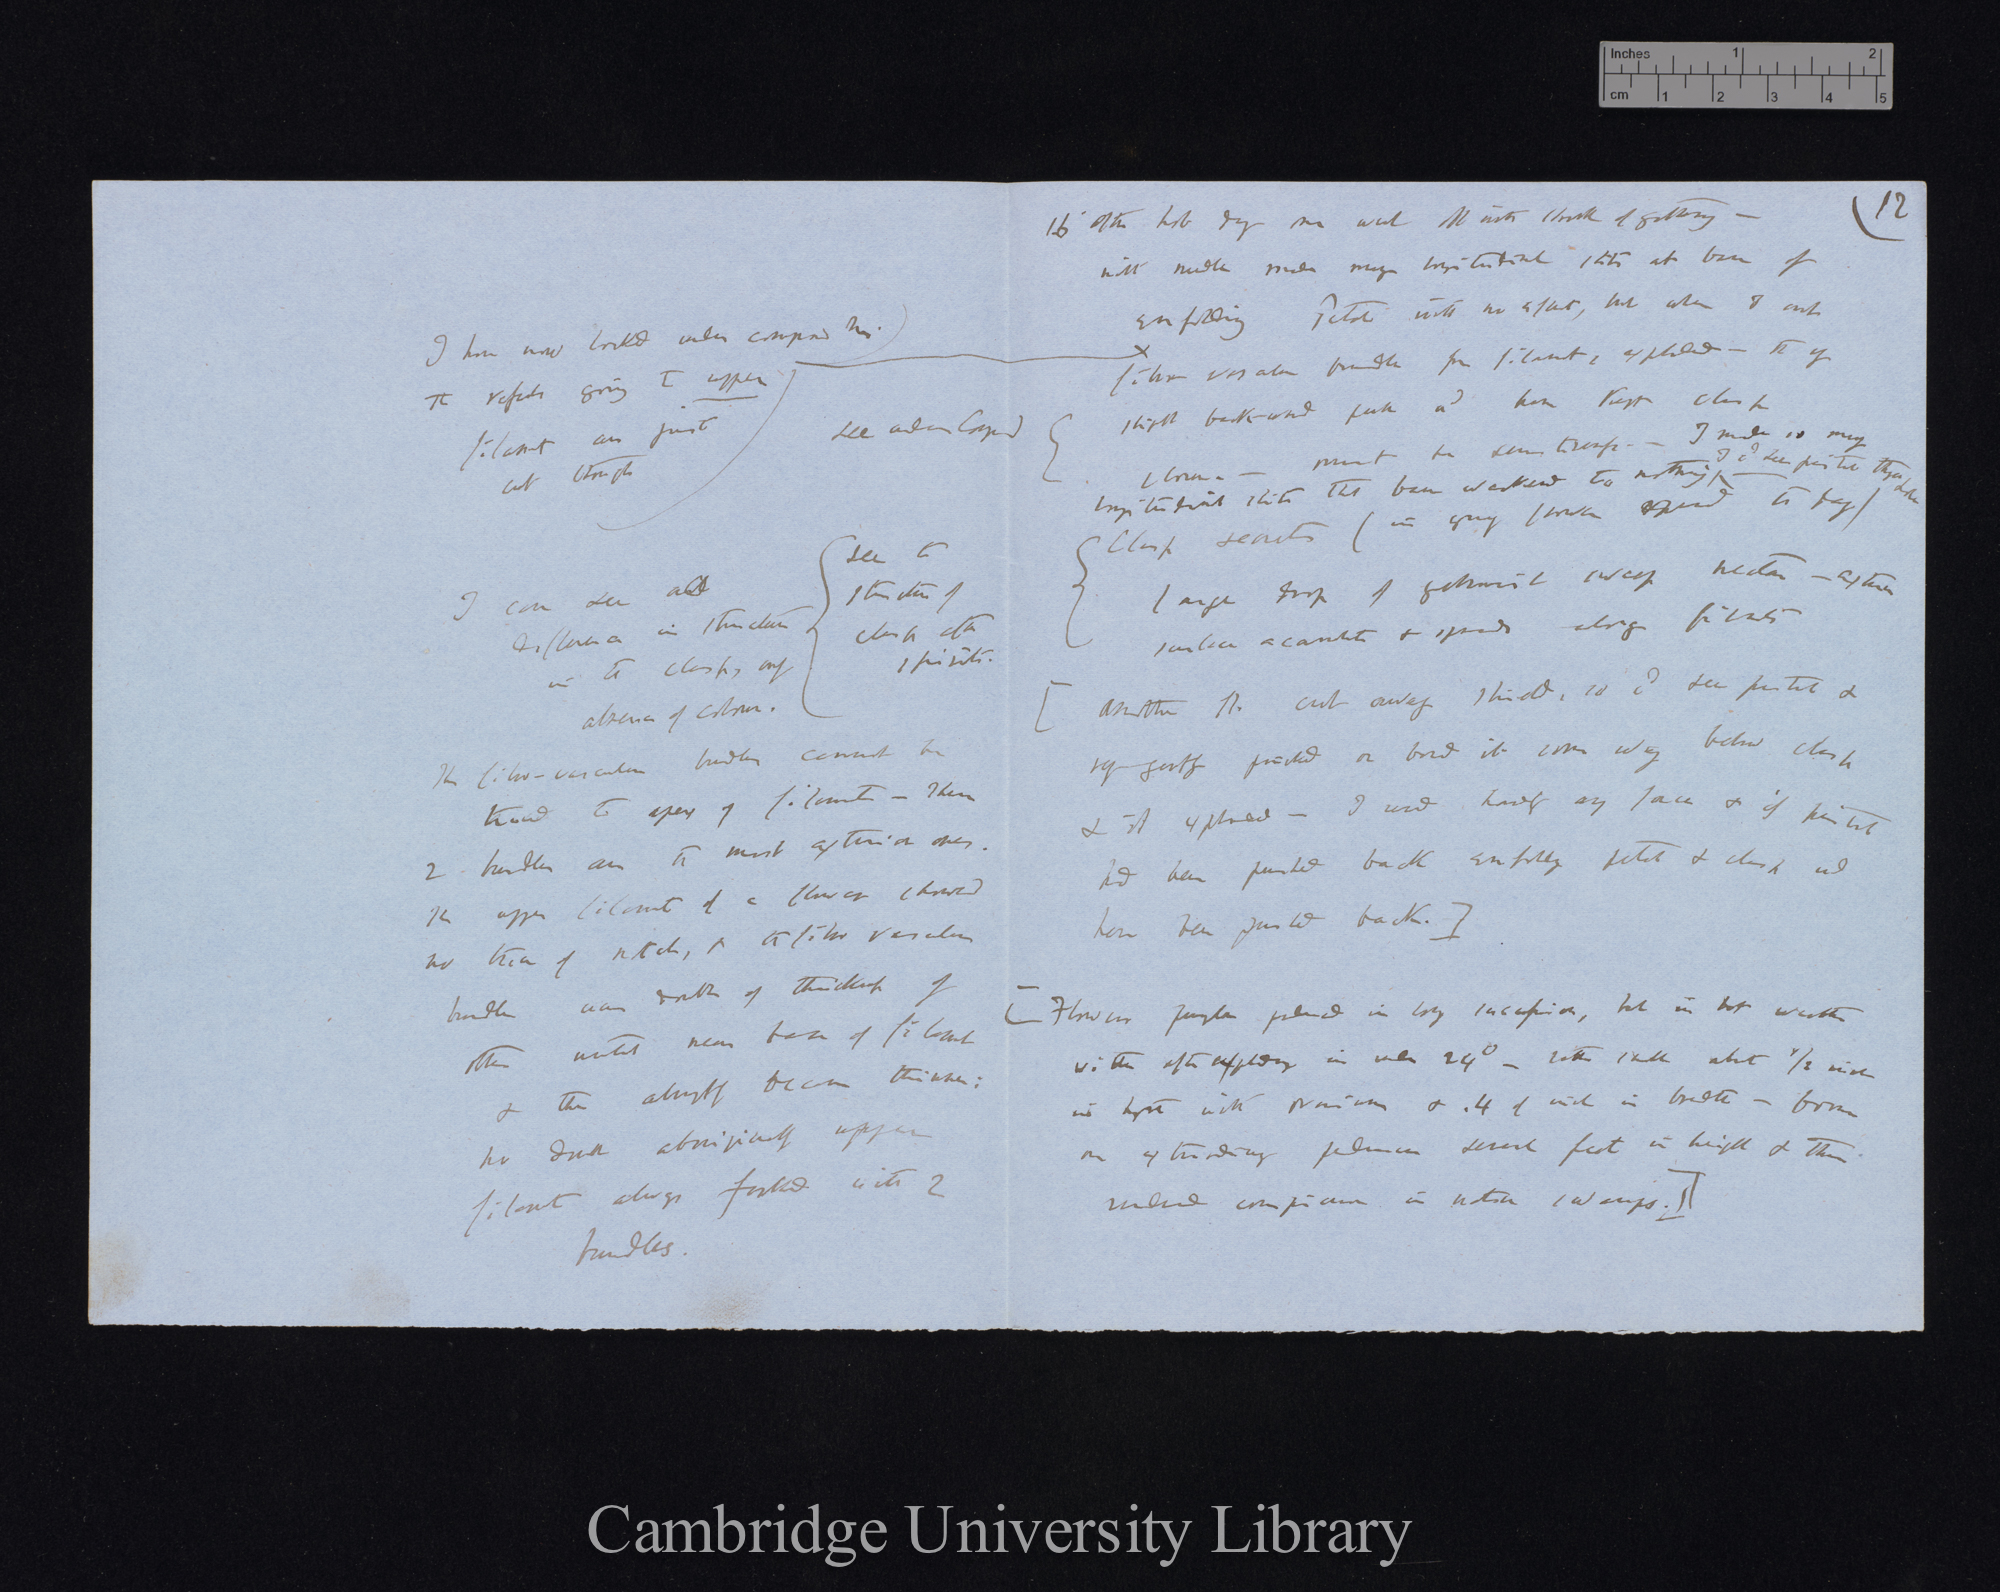 Inches 1 2
cm 1 2 3 4 5
I have now looked under compound
The vessels going to upper
filament are just
cut through
see under Compd
I can see
difference in structure
in the clasp, only
absence of colour.
see the
structure of
clasp after
spirits.
The fibro-vascular bundles cannot be
traced to apex of filament — These
2 bundles are the most exterior ones.
The upper filament of a flower showed
no trace of notch, & the fibro vascular
bundle was double of thickness of
other until near base of filament
& then abruptly became thinner;
no doubt aboriginally upper
filament always forked with 2
bundles.
(12
16 After hot day
with needle made many longitudinal slits at base of
enfolding Petal with no effect, but when I cut
fibro vascular bundle for filament, exploded — the
slight backward push have kept clasp
closed — must be sensitiveness. — I made so many
longitudinal slits that base weakened to nothing,
Clasp secretes (in every flower opened to day)
large drop of extremely sweet nectar — exterior
surface & spreads along filaments
[Another fl. cut away shield, so see pistil &
very gently pricked or bored it some way below clasp
& it exploded — I used hardly any force & if pistil
had been pushed back enfolding petal & clasp wd
have been pushed back.]
[Flowers purple placed in long succession, but in hot weather
wither after exploding in under 24° — rather small about 1/2 inch
in height with ovarium & .4 of inch in breadth — borne
on extruding peduncles several feet in height & thus
rendered conspicuous in native swamps.]
Cambridge University Library